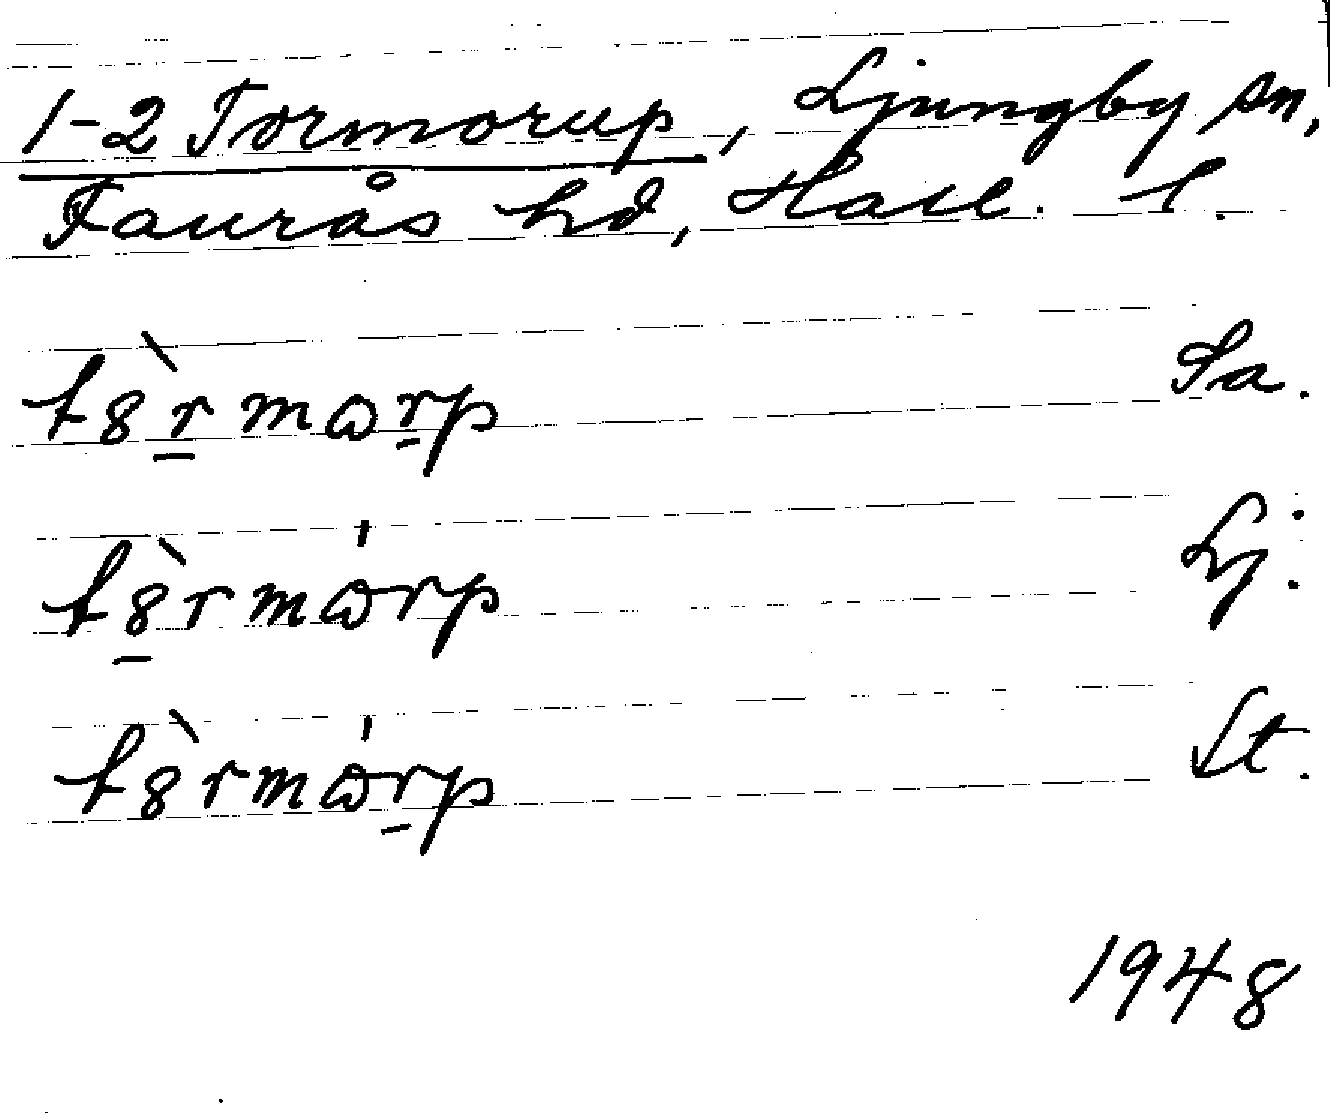 1-2 Tormorup, Ljungby sn,
Faurås hd, Hall. l.
t8̀r̠mɷr̠p Sa.
t8̠̀rmɷ́rp Lj.
t8̀rmɷ́r̠p St.
1948